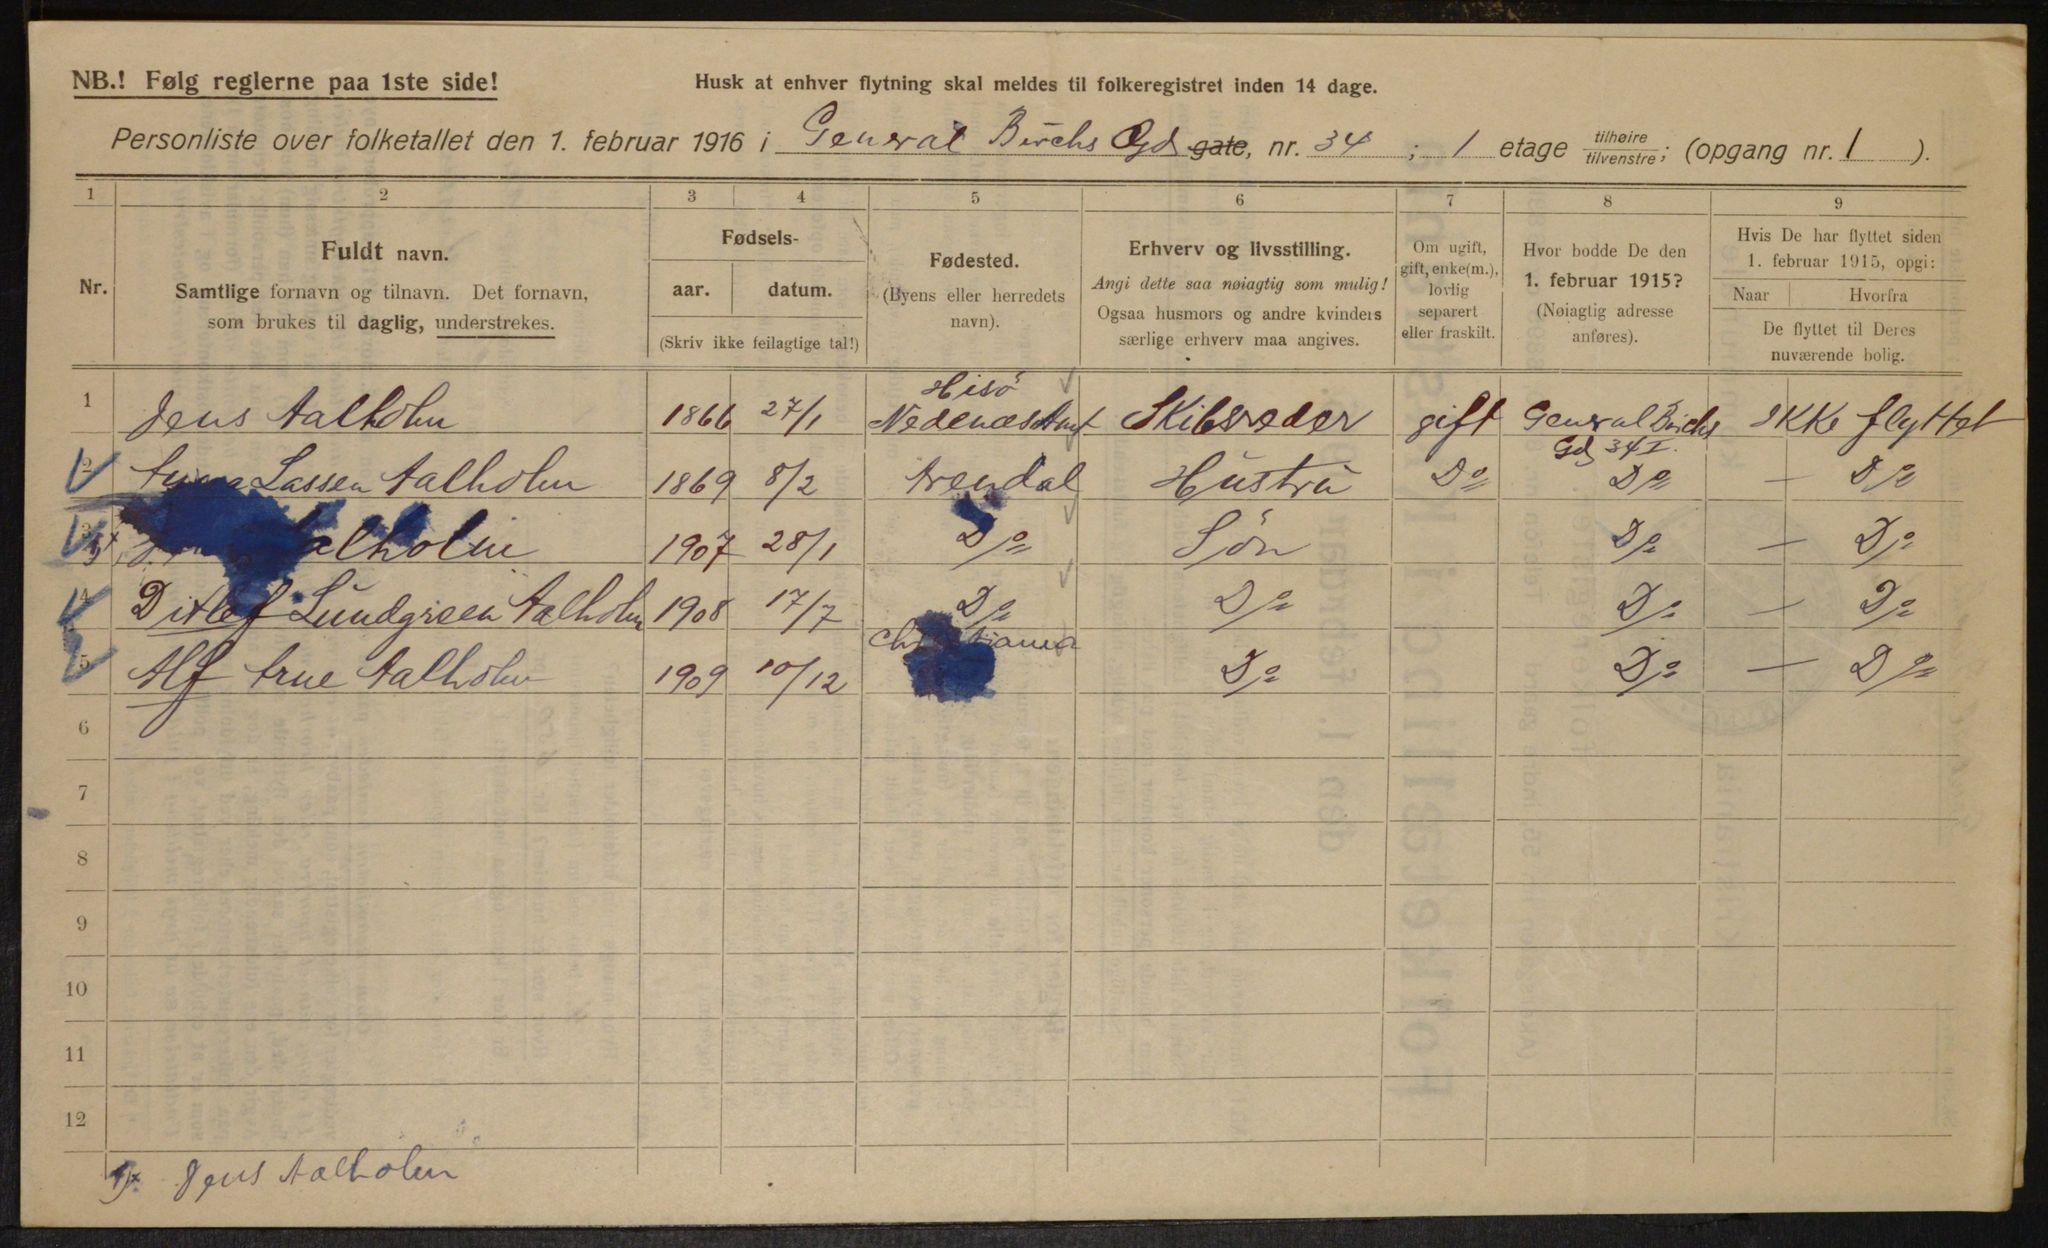 NB.! Følg reglerne paa 1ste side!
Husk at enhver flytning skal meldes til folkeregistret inden 14 dage.
Personliste over folketallet den 1. februar 1916 i General Birchs Gd gate, nr. 34 ; 1 etage tilhøire/tilvenstre; (opgang nr. 1 ).
1 2 3 4 5 6 7 8 9
Nr.
Fuldt navn.
Samtlige fornavn og tilnavn. Det fornavn,
som brukes til daglig, understrekes.
Fødsels-
aar. datum.
(Skriv ikke feilagtige tal!)
Fødested.
(Byens eller herredets
navn).
Erhverv og livsstilling.
Angi dette saa nøiagtig som mulig!
Ogsaa husmors og andre kvinders
særlige erhverv maa angives.
Om ugift,
gift, enke(m.),
lovlig
separert
eller fraskilt.
Hvor bodde De den
1. februar 1915?
(Nøiagtig adresse
anføres).
Hvis De har flyttet siden
1. februar 1915, opgi:
Naar Hvorfra
De flyttet til Deres
nuværende bolig.
1 Jens Aalholm 1866 27/1 Hisö Nedenæs Amt Skibsreder gift General Birchs Gd 34 I. Ikke flyttet
2 Lassen Aalholm 1869 8/2 Arendal Hustru Do Do - Do
3 Aalholm 1907 28/1 Do Sön Do - Do
4 Ditlef Lundgreen Aalholm 1908 17/7 Do Do Do - Do
5 Alf Arne Aalholm 1909 10/12 Christiania Do Do - Do
6
7
8
9
10
11
12
Jens Aalholm